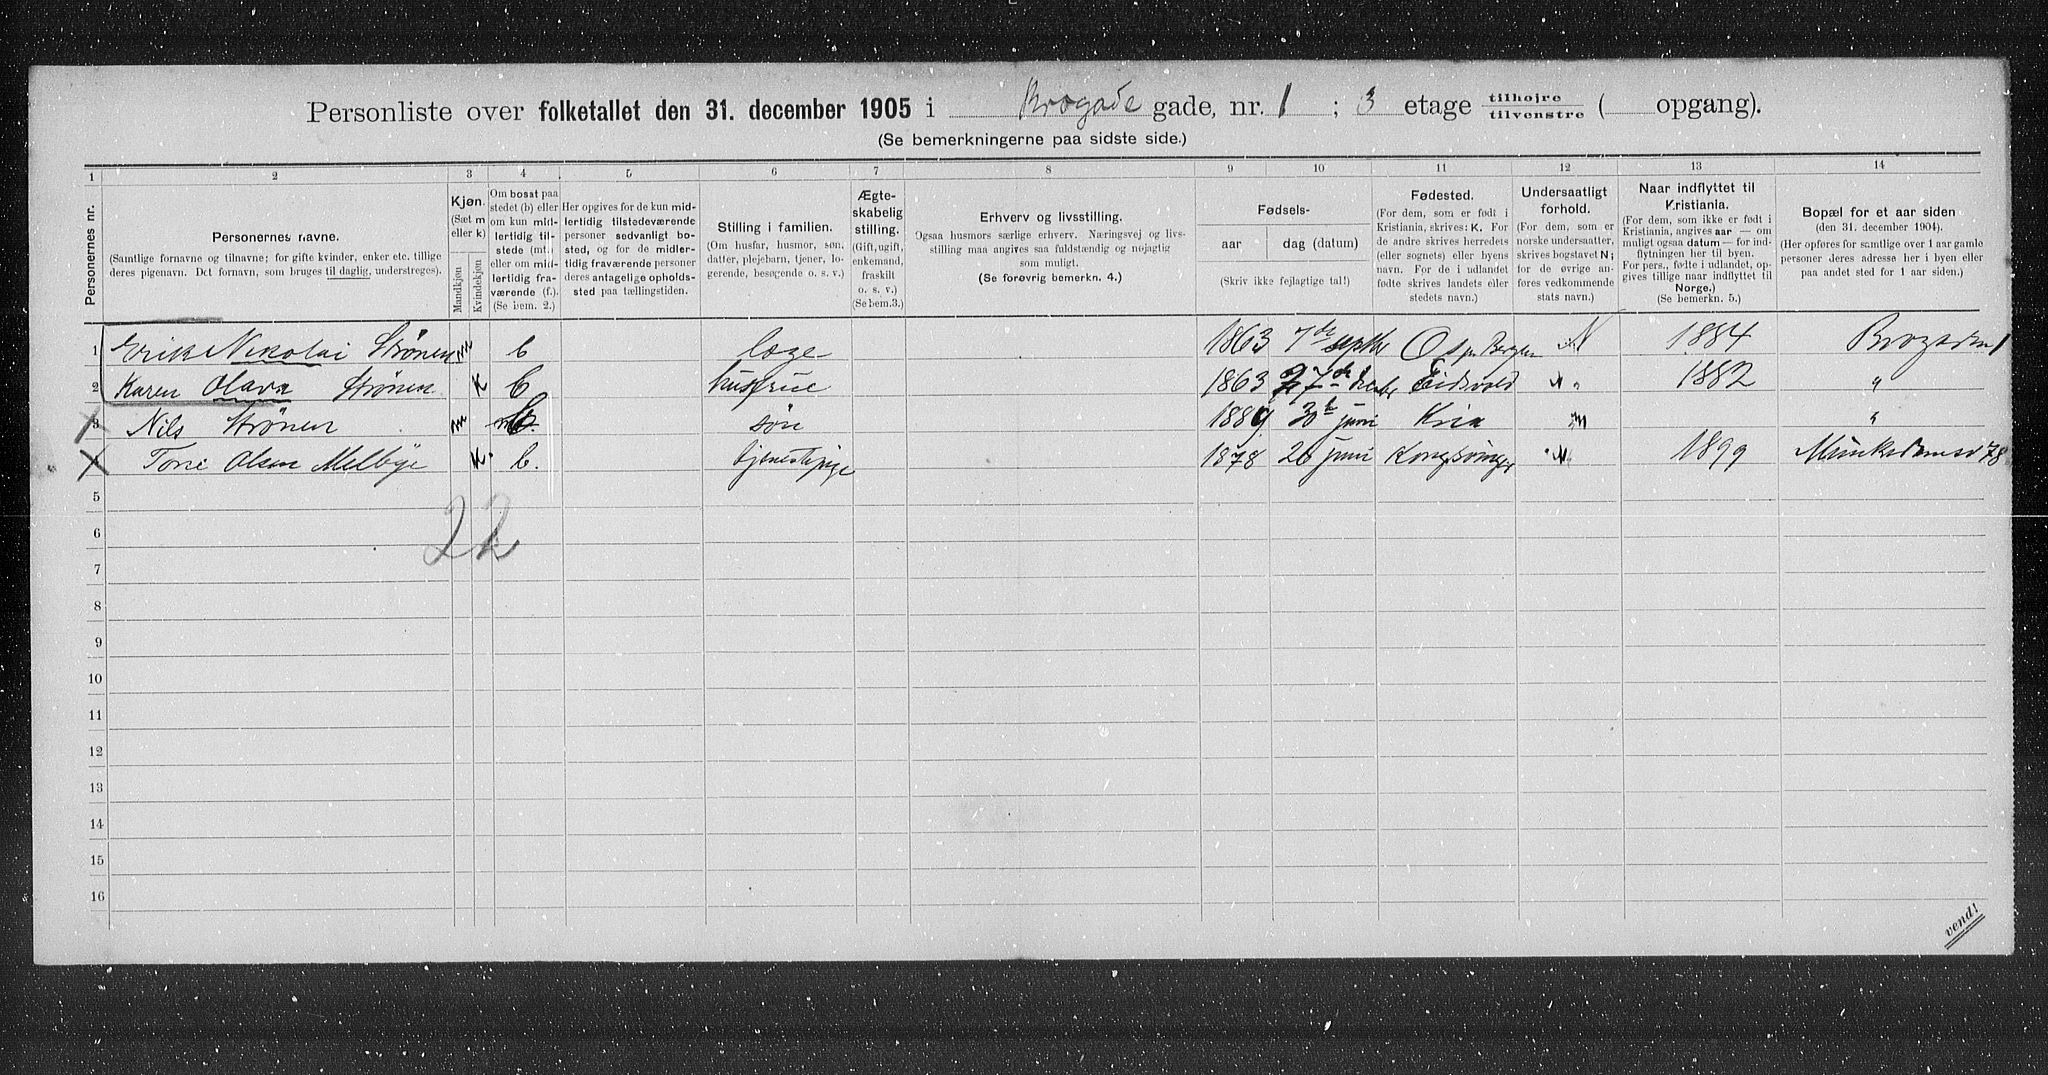 Personliste over folketallet den 31. december 1905 i Brogade gade, nr. 1 ; 3 etage tilhøjre tilvenstre ( opgang).
(Se bemerkningerne paa sidste side.)
1 2 3 4 5 6 7 8 9 10 11 12 13 14
Personernes nr.
Personernes navne.
(Samtlige fornavne og tilnavne; for gifte kvinder, enker etc. tillige
deres pigenavn. Det fornavn, som bruges til daglig, understreges).
Kjøn.
(Sæt m
eller k)
Mandkjøn
Kvindekjøn
Om bosat paa
stedet (b) eller
om kun mid-
lertidig til-
stede (mt.)
eller om mid-
lertidig fra-
værende (f.).
(Se bem. 2.)
Her opgives for de kun mid-
lertidig tilstedeværende
personer sedvanlig bo-
sted, og for de midler-
tidig fraværende personer
deres antagelige opholds-
sted paa tællingstiden.
Stilling i familien.
(Om husfar, husmor, søn,
datter, plejebarn, tjener, lo-
gerende, besøgende o. s. v.)
Ægte-
skabelig
stilling.
(Gift, ugift,
enkemand,
fraskilt
o. s. v.)
(Se bem.3.)
Erhverv og livsstilling.
Ogsaa husmors særlige erhverv. Næringsvej og livs-
stilling maa angives saa fuldstændig og nøjagtig
som muligt.
(Se forøvrig bemerkn. 4.)
Fødsels-
aar dag (datum)
(Skriv ikke fejlagtige tal!)
Fødested.
(For dem, som er født i
Kristiania, skrives: K. For
de andre skrives herredets
(eller sognets) eller byens
navn. For de i udlandet
fødte skrives landets eller
stedets navn.)
Undersaatligt
forhold.
(For dem, som er
norske undersaatter,
skrives bogstavet N;
for de øvrige an-
føres vedkommende
stats navn.)
Naar indflyttet til
Kristiania.
(For dem, som ikke er født i
Kristiania, angives aar — om
muligt ogsaa datum — for ind-
flytningen her til byen.
For pers., fødte i udlandet, op-
gives tillige naar indflyttet til
Norge.)
(Se bemerkn. 5.)
Bopæl for et aar siden
(den 31. december 1904).
(Her opføres for samtlige over 1 aar gamle
personer deres adresse her i byen eller
paa andet sted for 1 aar siden.)
1 Erik Nikolai Strønen m b loge 1863 7de septbr Os pr Bergen N 1884 Brogaden 1
2 Karen Olava Strønen K b hustrue 1863 27de decbr Eidsvold N „ 1882 „
3 Nils Strønen m b søn 1889 30te juni Kria „ „
4 Toni Olsen Melbye K. b. tjenestpige 1878 26 juni Kongsvinger N 1899 Munkedamsv 78
5
22
6
7
8
9
10
11
12
13
14
15
16
vend!